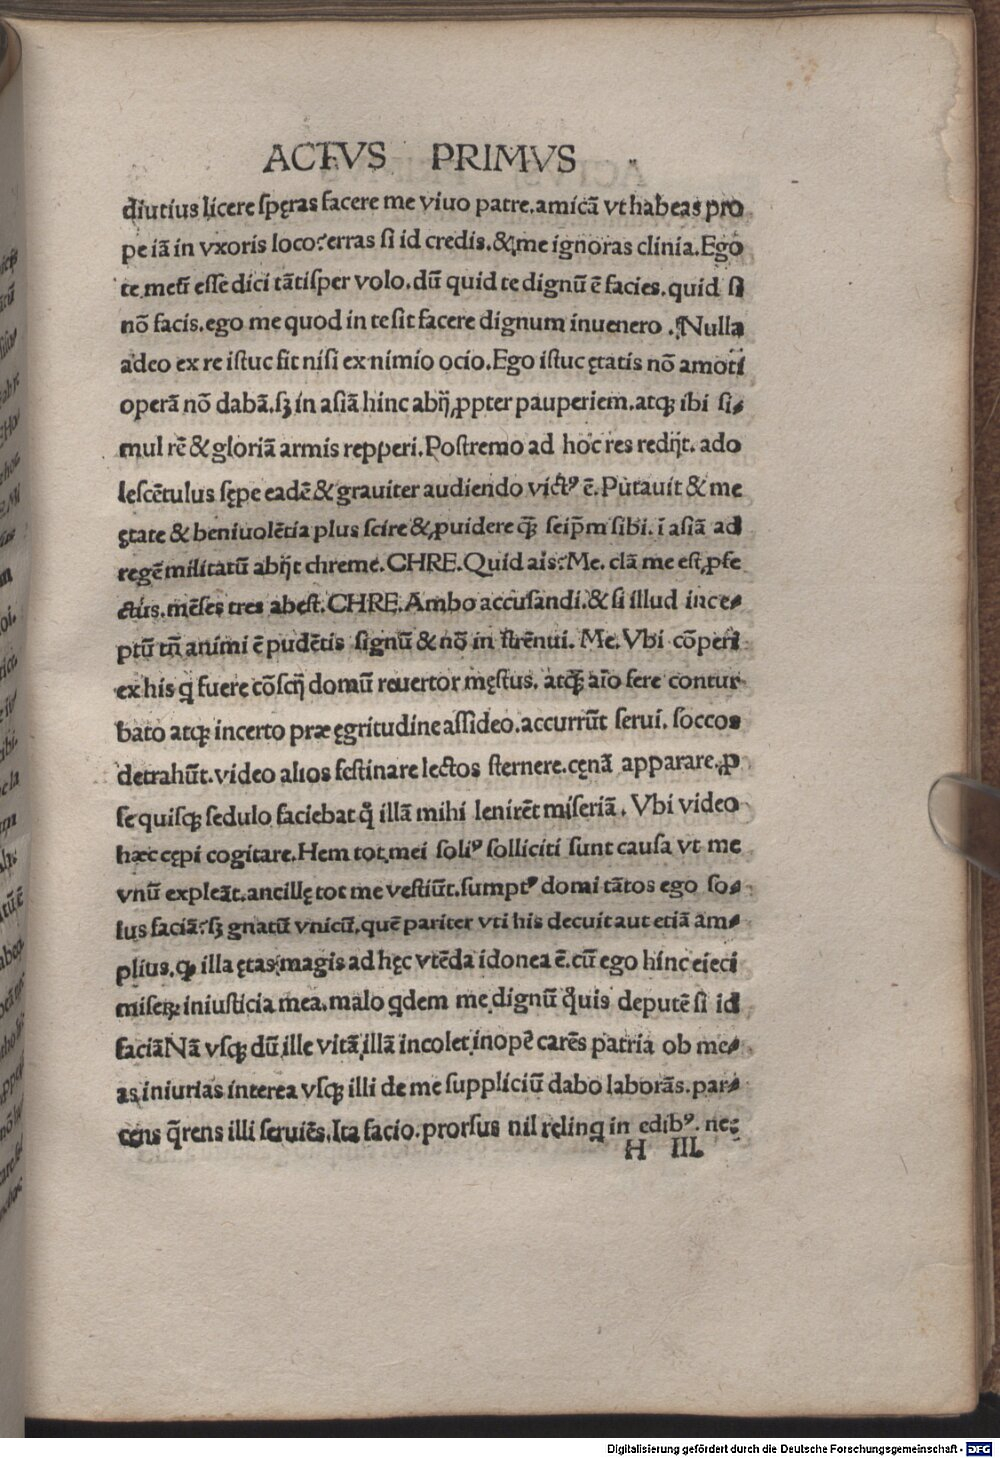 ACTVS PRIMVS
diutius licere spęras facere me viuo patre.amicā vt habeas pro
pe iā in vxoris loco?erras si id credis.&me ignoras clinia.Ego
te.meū esse dici tātisper volo.dū quid te dignū ē facies.quid si
nō facis.ego me quod in te sit facere dignum inuenero .Nulla
adeo ex re istuc fit nisi ex nimio ocio.Ego istuc ętatis nō amori
operā nō dabā.sꝫ in asiā hinc abij,ꝓpter pauperiem.atqꝫ ibi si-
mul rē & gloriā armis repperi.Postremo ad hoc res redijt. ado
lescētulus sępe eadē & grauiter audiendo victꝰ ē.Putauit & me
ętate & beniuolētia plus scire &,ꝓuidere qꝫ̄ seip̄m sibi. ī asiā ad
regē militatū abijt chreme.CHRE.Quid ais?Me. clā me est,ꝓfe
ctus.mēses tres abest.CHRE.Ambo accusandi.& si illud ince-
ptū tn̄ animi ē pudētis signū & nō in strēnui. Me.Vbi cōperi
ex his q fuere cōscij domū reuertor męstus. atqꝫ̄ aīo fere contur
bato atqꝫ incerto præ ęgritudine assideo.accurrūt serui. soccos
detrahūt.video alios festinare lectos sternere.cęnā apparare.,ꝓ
se quisqꝫ sedulo faciebat q̊ illā mihi lenirēt miseriā. Vbi video
hæc cępi cogitare.Hem tot.mei soliꝰ solliciti sunt causa vt me
vnū expleāt.ancillę tot me vestiūt.sumptꝰ domi tātos ego so-
lus faciā?sꝫ gnatū vnicū.quē pariter vti his decuit aut etiā am-
plius.qꝫ illa ętas magis ad hęc vtēda idonea ē.cū ego hinc eieci
miseꝝ iniusticia mea.malo qdem me dignū q̊uis deputē si id
faciāNā vsqꝫ dū ille vitā illā incolet inopē carēs patria ob me-
as iniurias interea vsqꝫ illi de me suppliciū dabo laborās.par-
cens q̄rens illi seruiēs.Ita facio.prorsus nil relinq in edibꝰ. neꝫ
H III.
Digitalisierung gefördert durch die Deutsche Forschungsgemeinschaft - DFG